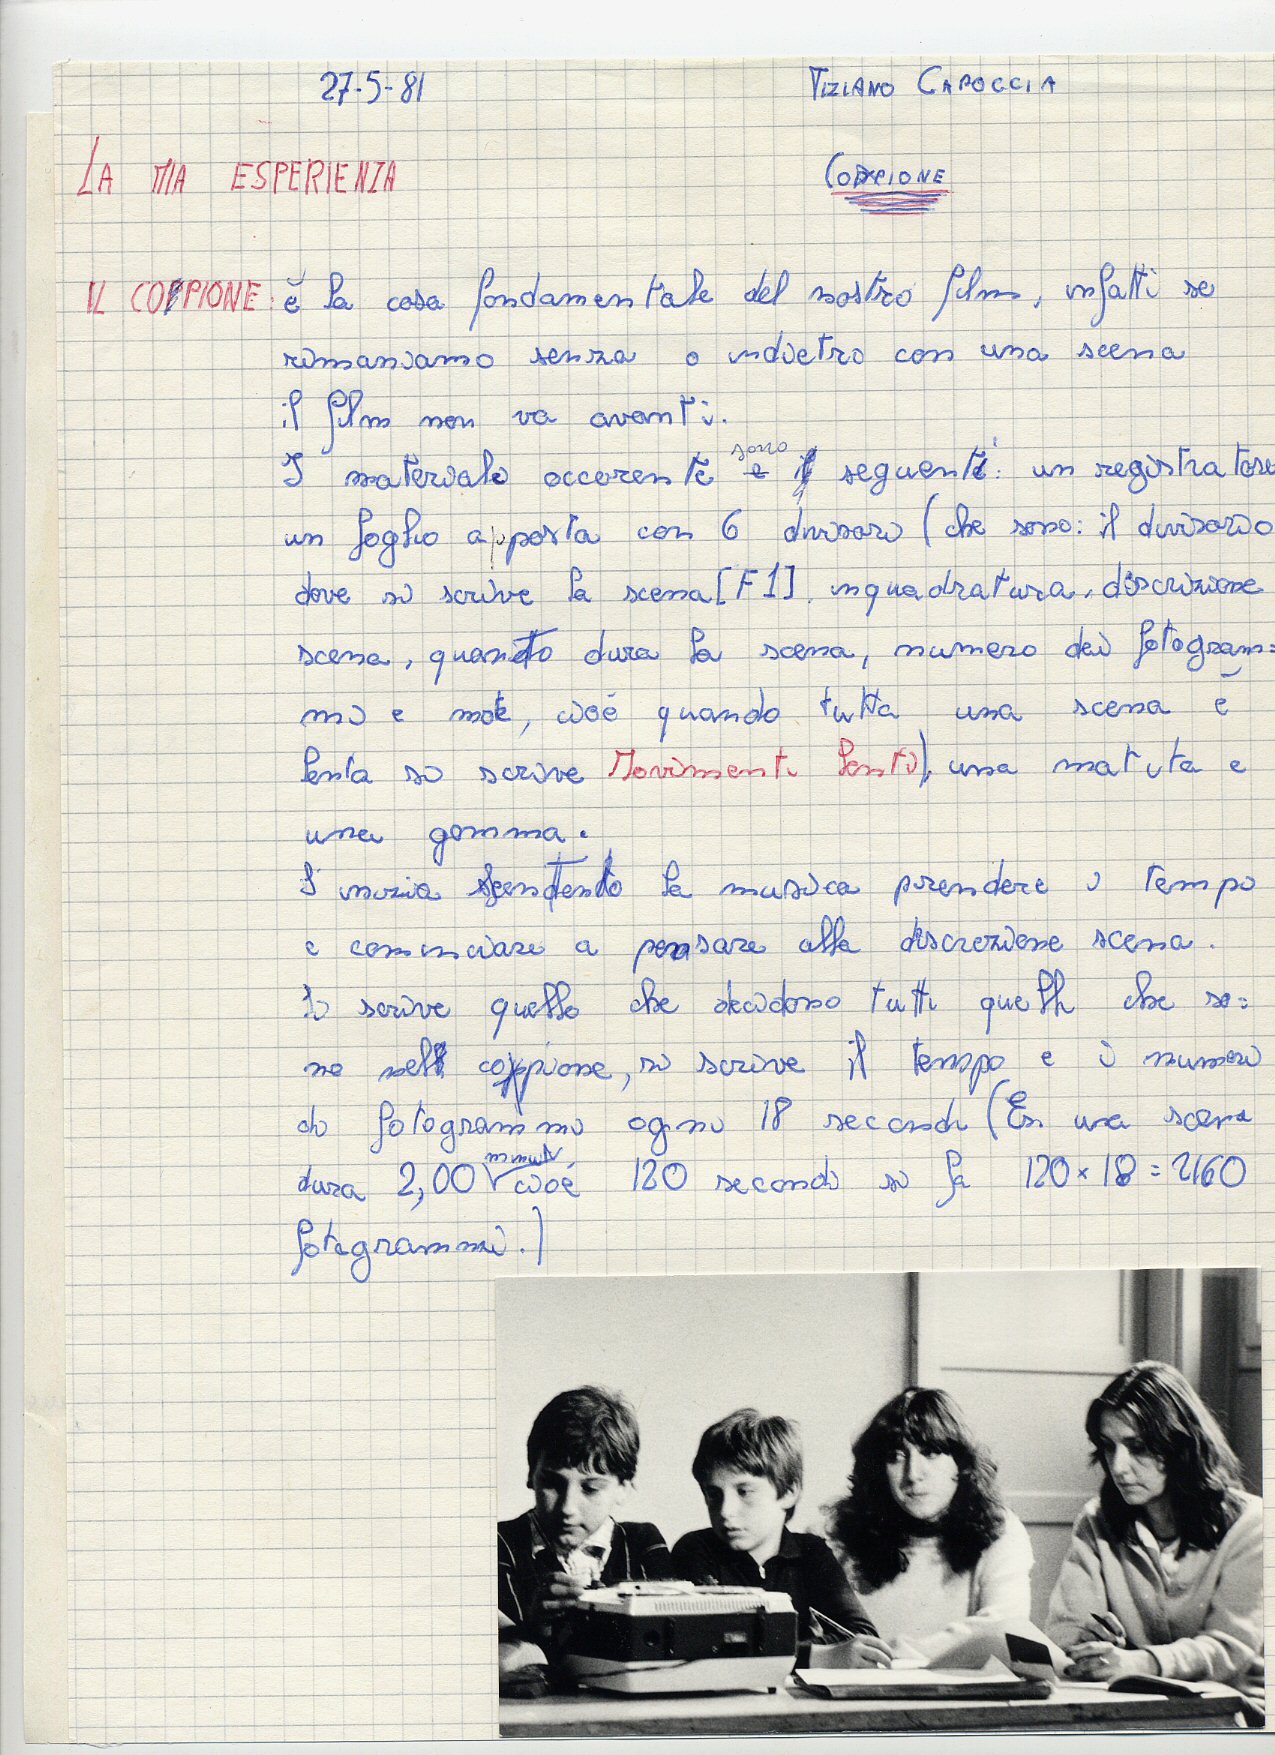 27-5-81
TIZIANO CAPOCCIA
LA MIA ESPERIENZA
COPIONE
IL COPIONE: è la cosa fondamentale del nostro film, infatti se
rimaniamo senza o indietro con una scena
il film non va avanti.
I materiali occorenti sono i seguenti: un registratore
un foglio apposta con 6 divisori (che sono: il divisorio
dove si scrive la scena [F1], inquadratura, discrizione
scena, quanto dura la scena, numero dei fotogram=
mi e note, cioè quando tutta una scena è
lenta si scrive Movimenti lenti), una matita e
una gomma.
S'inizia sentendo la musica prendere i tempo
e cominciare a pensare alla discrezione scena.
Si scrive quello che decidono tutti quelli che so=
no nel copione, si scrive il tempo e i numeri
di fotogrammi ogni 18 secondi (Es una scena
dura 2,00 minuti cioè 120 secondi si fa 120 x 18 = 2160
fotogrammi.)